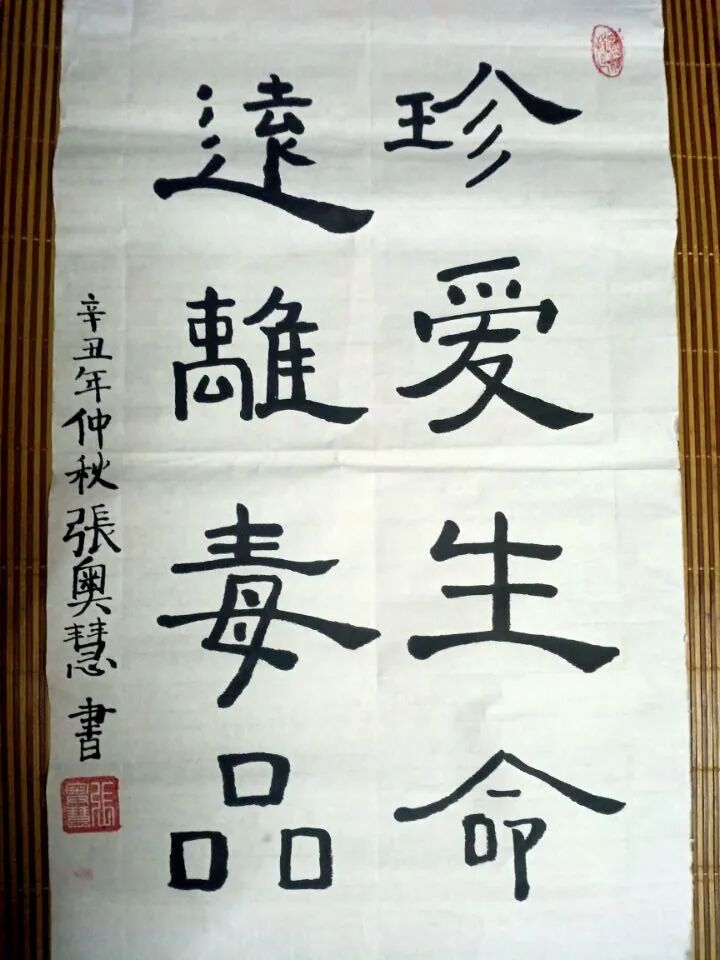 珍爱生命
遠離毒品
辛丑年仲秋張奥慧書